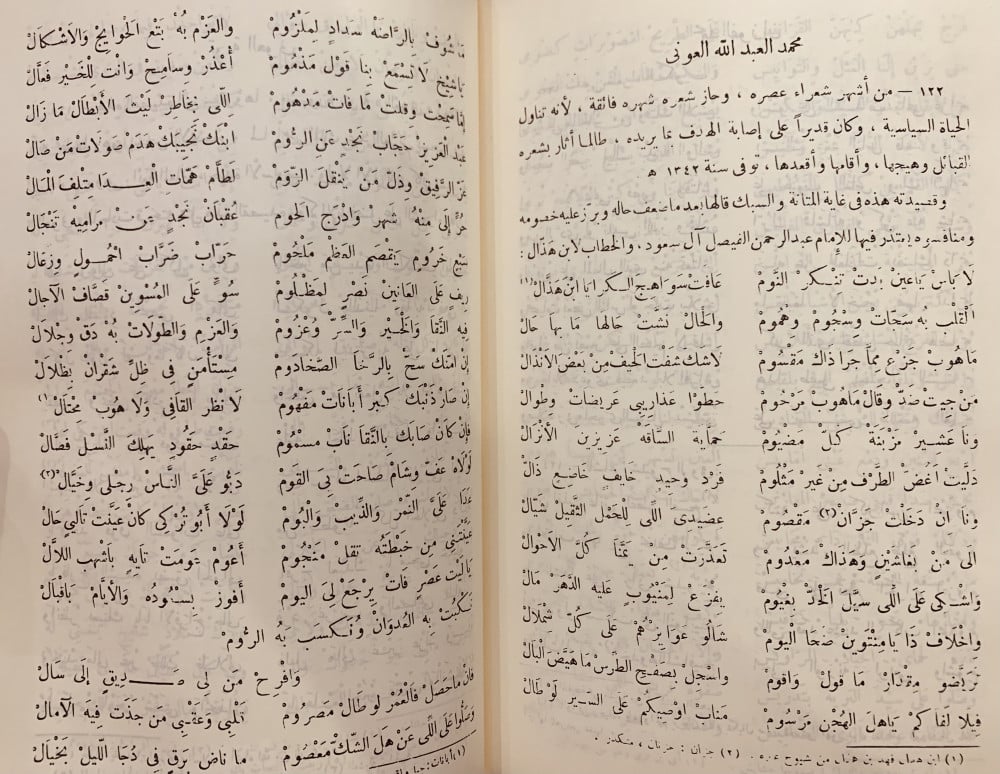 محمد العبد الله العونى
١٢٢ — من أشهر شعراء عصره ، وحاز شعره شهره فائقة ، لأنه تناول
الحياة السياسية ، وكان قديراً على إصابة الهدف بما يريده ، طالما أثار بشعره
القبائل وهيجها ، وأقامها وأقعدها ، توفى سنة ١٣٤٢ هـ
وقصيدته هذه فى غاية المتانة والسبك قالها بعد ما ضعف حاله وبرز عليه خصومه
ومنافسيه يعتذر فيها للإمام عبد الرحمن الفيصل آل سعود ، والخطاب لابن هذال :
لَا بَاسْ يَاعَيْنٍ بِدَتْ تِنْكِرْ النَّوْمْ عَافَتْ سَوَاهِيجْ الكَرَا يَا ابْنْ هَذَّالْ (١)
القَلْب بُه سَجَّاتْ وِسْجُومْ وِهْمُومْ وَالْحَالْ نَشَّتْ حَالَهَا مَا بِهَا حَالْ
مَاهُوبْ جَزْعٍ مِمَّا جَرَا ذَاكْ مَقْسُومْ لَاشَكْ شَفْتْ الْحَيْف مِنْ بَعْضْ الأنْذَالْ
مَنْ جِيتْ ضَدّْ وِقَالْ مَاهُوبْ مَرْحُومْ حَطَّوْا عَذَارِيبِى عَرِيضَاتْ وِطْوَالْ
ونَا عَشِيرْ مَزْبَنَةْ كِلّْ مَضْيُومْ حَمَّايَةْ السَّاقَةْ عَزِيزِينْ الأنْزَالْ
ذَلَّيتْ اَغُضّْ الطَّرْفْ مِنْ غَيرْ مَثْلُومْ فَرْدٍ وحِيدٍ خَايِفٍ خَاضِعٍ ذَالّْ
ونَا انْ دَخَلْتْ جَزَّانْ (٢) مَقْصُومْ عَضِيدِىَ اللِّى لِلْحَمْل الثَّقِيلْ شَيَّالْ
الَى مَنْ بَغَاشَيْنٍ وَهَذَاكْ مَعْدُومْ تَعَذَّرَتْ مِنْ يَمَّنَا كُلّْ الأحْوَالْ
وَاشْكِى عَلَى اللِّى سَيَّلْ الخَدّْ بِغْيُومْ يِفْزَعْ لِمَنْيُوبٍ عليه الدَّهَرْ مَالْ
وِاخْلَافْ ذَا يَا مِنْتوِينْ ضَحَا اليومْ شَالُو عَوَايِزْهُمْ عَلَى كلّْ شِمْلَالْ
تَرَيَّضُو مِقْدَارْ مَا قولْ وَاقومْ وِاسْجِلْ بِصَفْحِ الطِّرْسْ مَا هَيَّضَ الْبَالْ
فيلا لفاكمْ يَاهلَ الهُجْنْ مَرْسُومْ مَنَابْ اوصِيكُمْ عَلَى السَّيرْ لَوْ طَالْ
(١) ابن هذال فهد بن هذال من شيوخ عنزه . (٢) جزان : حزنان ، متكدر .
مَاشُوفْ بِالرَّاضَةْ سَدَادٍ لِمَلْزُومْ وَالعَزْمْ بُهْ بَتْعِ الحَوَايِجْ وَالأشْكَالْ
يَاشَيْخْ لَا تَسْمَعْ بِنَا قَوْلْ مَذْمُومْ أَعْذُرْ وسَامِحْ وَانْتْ لِلْخَيْر فَعَّالْ
إمَّا سَمَحْتْ وقلتْ مَا فاتْ مَدْهُومْ اللِّى بِخَاطِرْ لَيْثَ الأبْطَالْ مَا زَالْ
عَبْدَ الْعَزِيزْ حَجَّابْ نَجْدٍ عَنِ الرُّومْ ابنْكْ نَجِيبكْ هَدَمْ صَولَاتْ مَنْ صَالْ
عِزّْ الرَّفيقْ وذِلّْ مَنْ يَنْقلَ الزَّومْ لَطَّامْ هَمَّاتَ العِدَا مِتْلِفَ الْمَالْ
حُرٍّ إلَى مِنْهْ شَهَرْ وَادْرَجَ الحَومْ عُقْبَانْ نَجْدٍ عَنْ مَرَامِيهْ تَنْجَالْ
سَبْعٍ خَرُومٍ يَقْصِمَ العَظْم مَلْحُومْ حَرَّابْ ضَرَّابْ احْمُولٍ وزِعَّالْ
رِيفٍ عَلَى العَانِينْ نَصْرٍ لِمَظْلُومْ سُوٍّ عَلَى المُسْوِينْ قَصَّافَ الآجالْ
فِيهَ النَّقَا وَالْخَيْر وَالسِّرّْ وعْزُومْ وَالعَزمْ وَالطَّولَاتْ بُهْ دَقّْ وجْلَالْ
إنْ امَّنَكْ سَجّْ بِالرَّخَا الصَّخَادُومْ مِسْتَأْمَنٍ فِى ظِلِّ شَقْرَانْ بَظْلَالْ
إنْ صَارْ ذَنْبَكْ كِبْر أَبَانَاتْ مَفْهُومْ لَا نظَر القَافِى وَلَا هُوبْ مِحْتَالْ (١)
فَإنْ كَانْ صَابَكْ بِالنَّقَا نَابْ مسْمُومْ حَقْدٍ حَقُودٍ يهلِكَ النَّسْل فَصَّالْ
لَوْلَاهْ عَفّْ وشَامْ صَاحَتْ بِىَ القَومْ دَبُّو عَلَىَّ النَّاسْ رِجْلِى وخَيَّالْ (٢)
عَدَا عَلَىَّ النَّمْر وَالذِّيبْ وَالبُومْ لَوْلَا أَبُو تُرْكِى كانْ عَيَّنْتْ تَالِيىِ حَالْ
مِن خَبْطَتُه نقل مَنْجُومْ أَعُومْ عَومَتْ تَايِهٍ بَاشْهَب اللالْ
يَا لَيتْ عَصْرٍ فَاتْ يِرْجَعْ لِىَ اليومْ أَفوزْ بِسْعُودُه وَالأيَّامْ بَاقْبَالْ
نَكْبُتْ بِهِ العُدوَانْ وُنكسَبْ بَهُ الرُّومْ
وَافْرِحْ مَن لِى صَدِيقٍ إلَى سَالْ
فَانْ مَا حَصَلْ فَالعُمْر لَو طَالْ مَصْرُومْ تَبْلَى وَعَقْبِى مَن جَذَتْ فِيهَ الآمَالْ
وِصَلُّوا عَلَى اللِّى عَنْ هَلَ الشّكْ مَعْصُومْ مَا نَاضْ بَرقٍ فِى دُجَا اللَّيلْ بَخْيَالْ